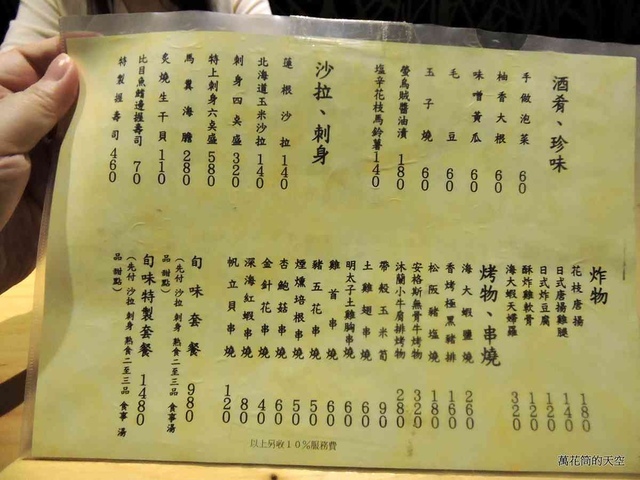 酒肴、珍味
手做泡菜 60
柚香大根 60
味噌黃瓜 60
毛豆 60
玉子燒 60
螢烏賊醬油漬 180
塩辛花枝馬鈴薯 140
沙拉、刺身
蓮根沙拉 140
北海道玉米沙拉 140
刺身四点盛 320
特上刺身六点盛 580
馬糞海膽 280
炙燒生干貝 110
比目魚鰭邊握壽司 70
特製握壽司 460
炸物
花枝唐揚 180
日式唐揚雞腿 140
日式炸豆腐 120
酥炸雞軟骨 120
海大蝦天婦羅 320
烤物、串燒
海大蝦鹽燒 260
香烤極黑豬排 160
松阪豬塩燒 180
安格斯無骨牛烤物 320
沐蘭小牛肩排烤物 280
帶殼玉米筍 90
土雞翅串燒 60
明太子土雞胸串燒 60
雞首串燒 60
豬五花串燒 50
煙燻培根串燒 50
杏鮑菇串燒 60
金針花串燒 40
深海紅蝦串燒 80
帆立貝串燒 120
旬味套餐 980
(先付 沙拉 刺身 熟食二至三品 食事 湯品 甜點)
旬味特製套餐 1480
(先付 沙拉 刺身 熟食二至三品 食事 湯品 甜點)
以上另收10%服務費
萬花筒的天空